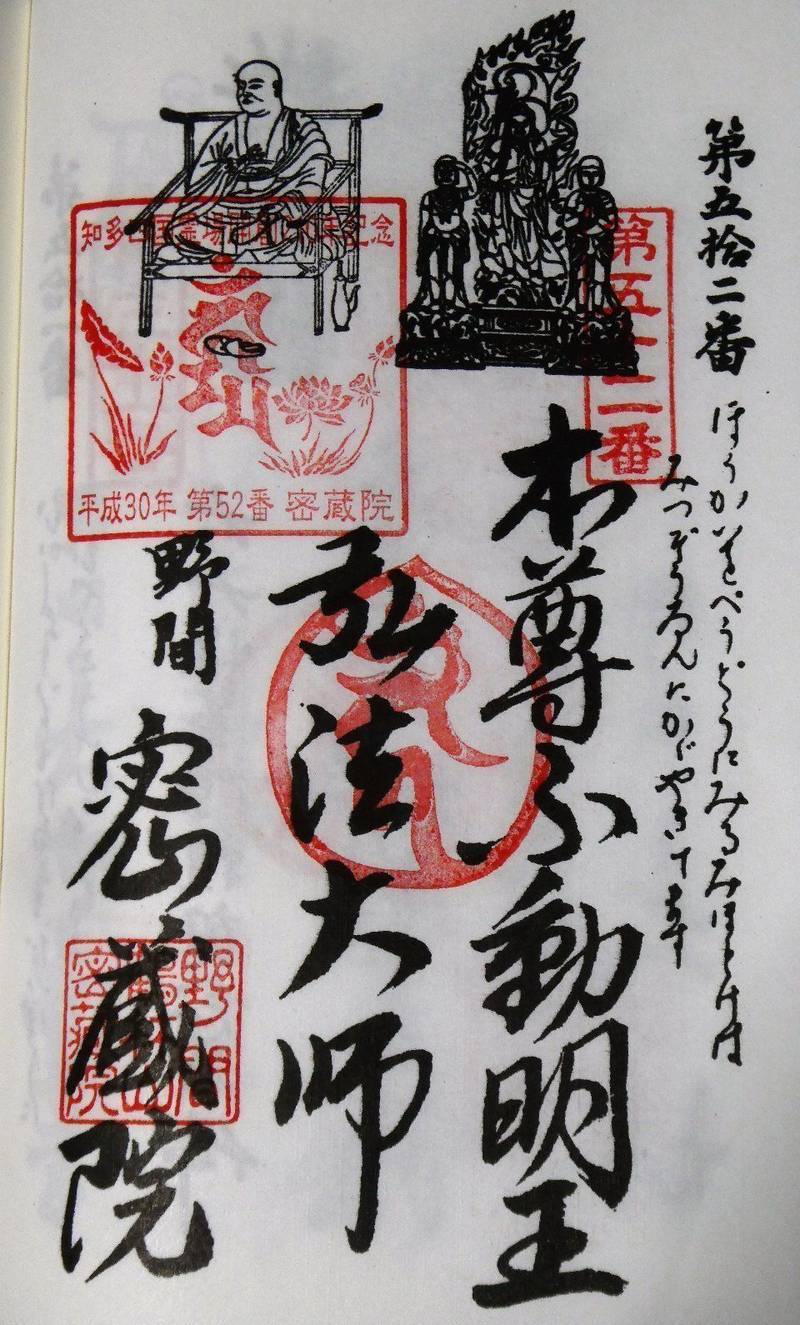 第五拾二番
ほうかいをべうどうにみるみほとけは
みつぞうゐんにかがやきてます
第五十二番
本尊不動明王
弘法大師
知多四国霊場開創
年記念
平成30年 第52番 密蔵院
野間
密蔵院
野間
密蔵院